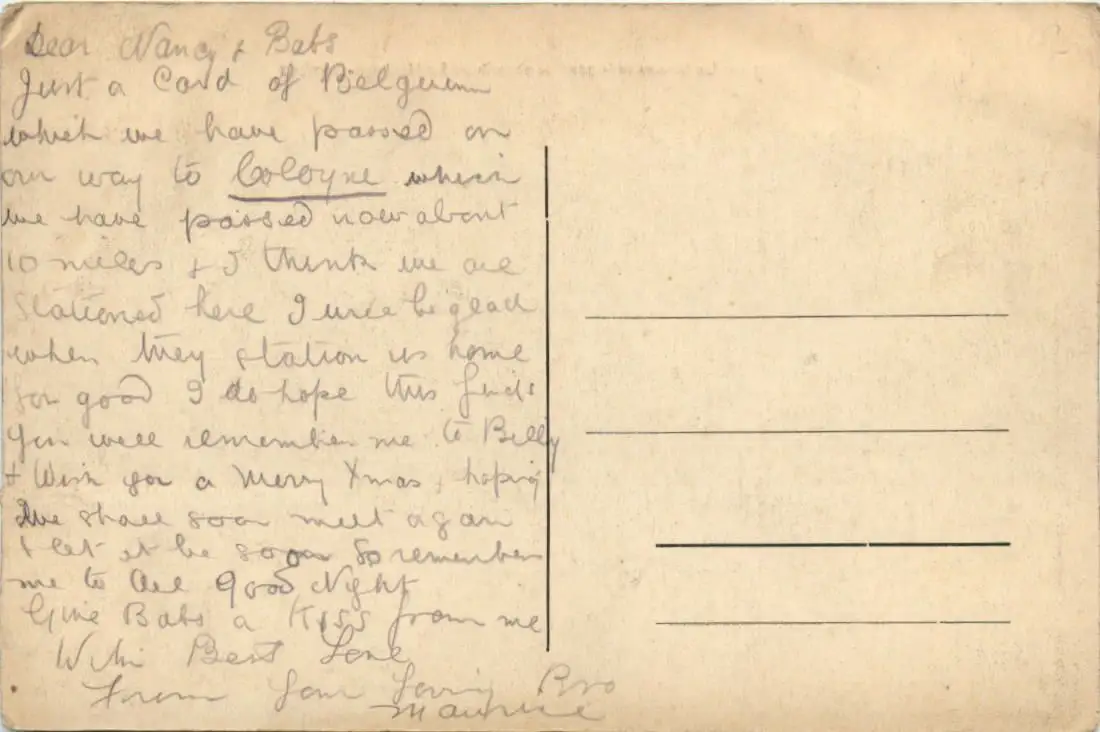 Dear Nancy & Babs
Just a Card of Belguim
which we have passed on
our way to Cologne which
we have passed now about
10 miles & I think we are
stationed here I will be glad
when they station us home
for good I do hope this finds
you well remember me to Billy
& Wish you a Merry Xmas, hoping
We shall soon meet again
& let it be soon So remember
me to all good Night
Give Babs a Kiss from me
With Best Love
From Your Loving Bro
Maurice